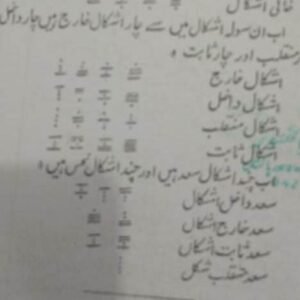 خالی اشکال
اب ان سولہ اشکال میں سے چار اشکال خارج ہیں چار داخل
منقلب اور چار ثابت ہ
اشکال خارج
اشکال داخل
اشکال منقلب
اشکال ثابت
اب چند اشکال سعد ہیں اور چند اشکال نحس ہیں ہ
سعد داخل اشکال
سعد خارج اشکال
سعد ثابت اشکال
سعد منقلب شکل